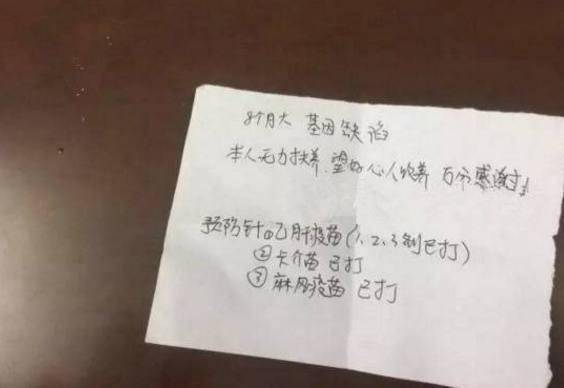 8个月大 基因缺陷
本人无力抚养,望好心人收养 万分感谢!
预防针①乙肝疫苗(1、2、3剂已打)
②卡介苗 已打
③麻风疫苗 已打